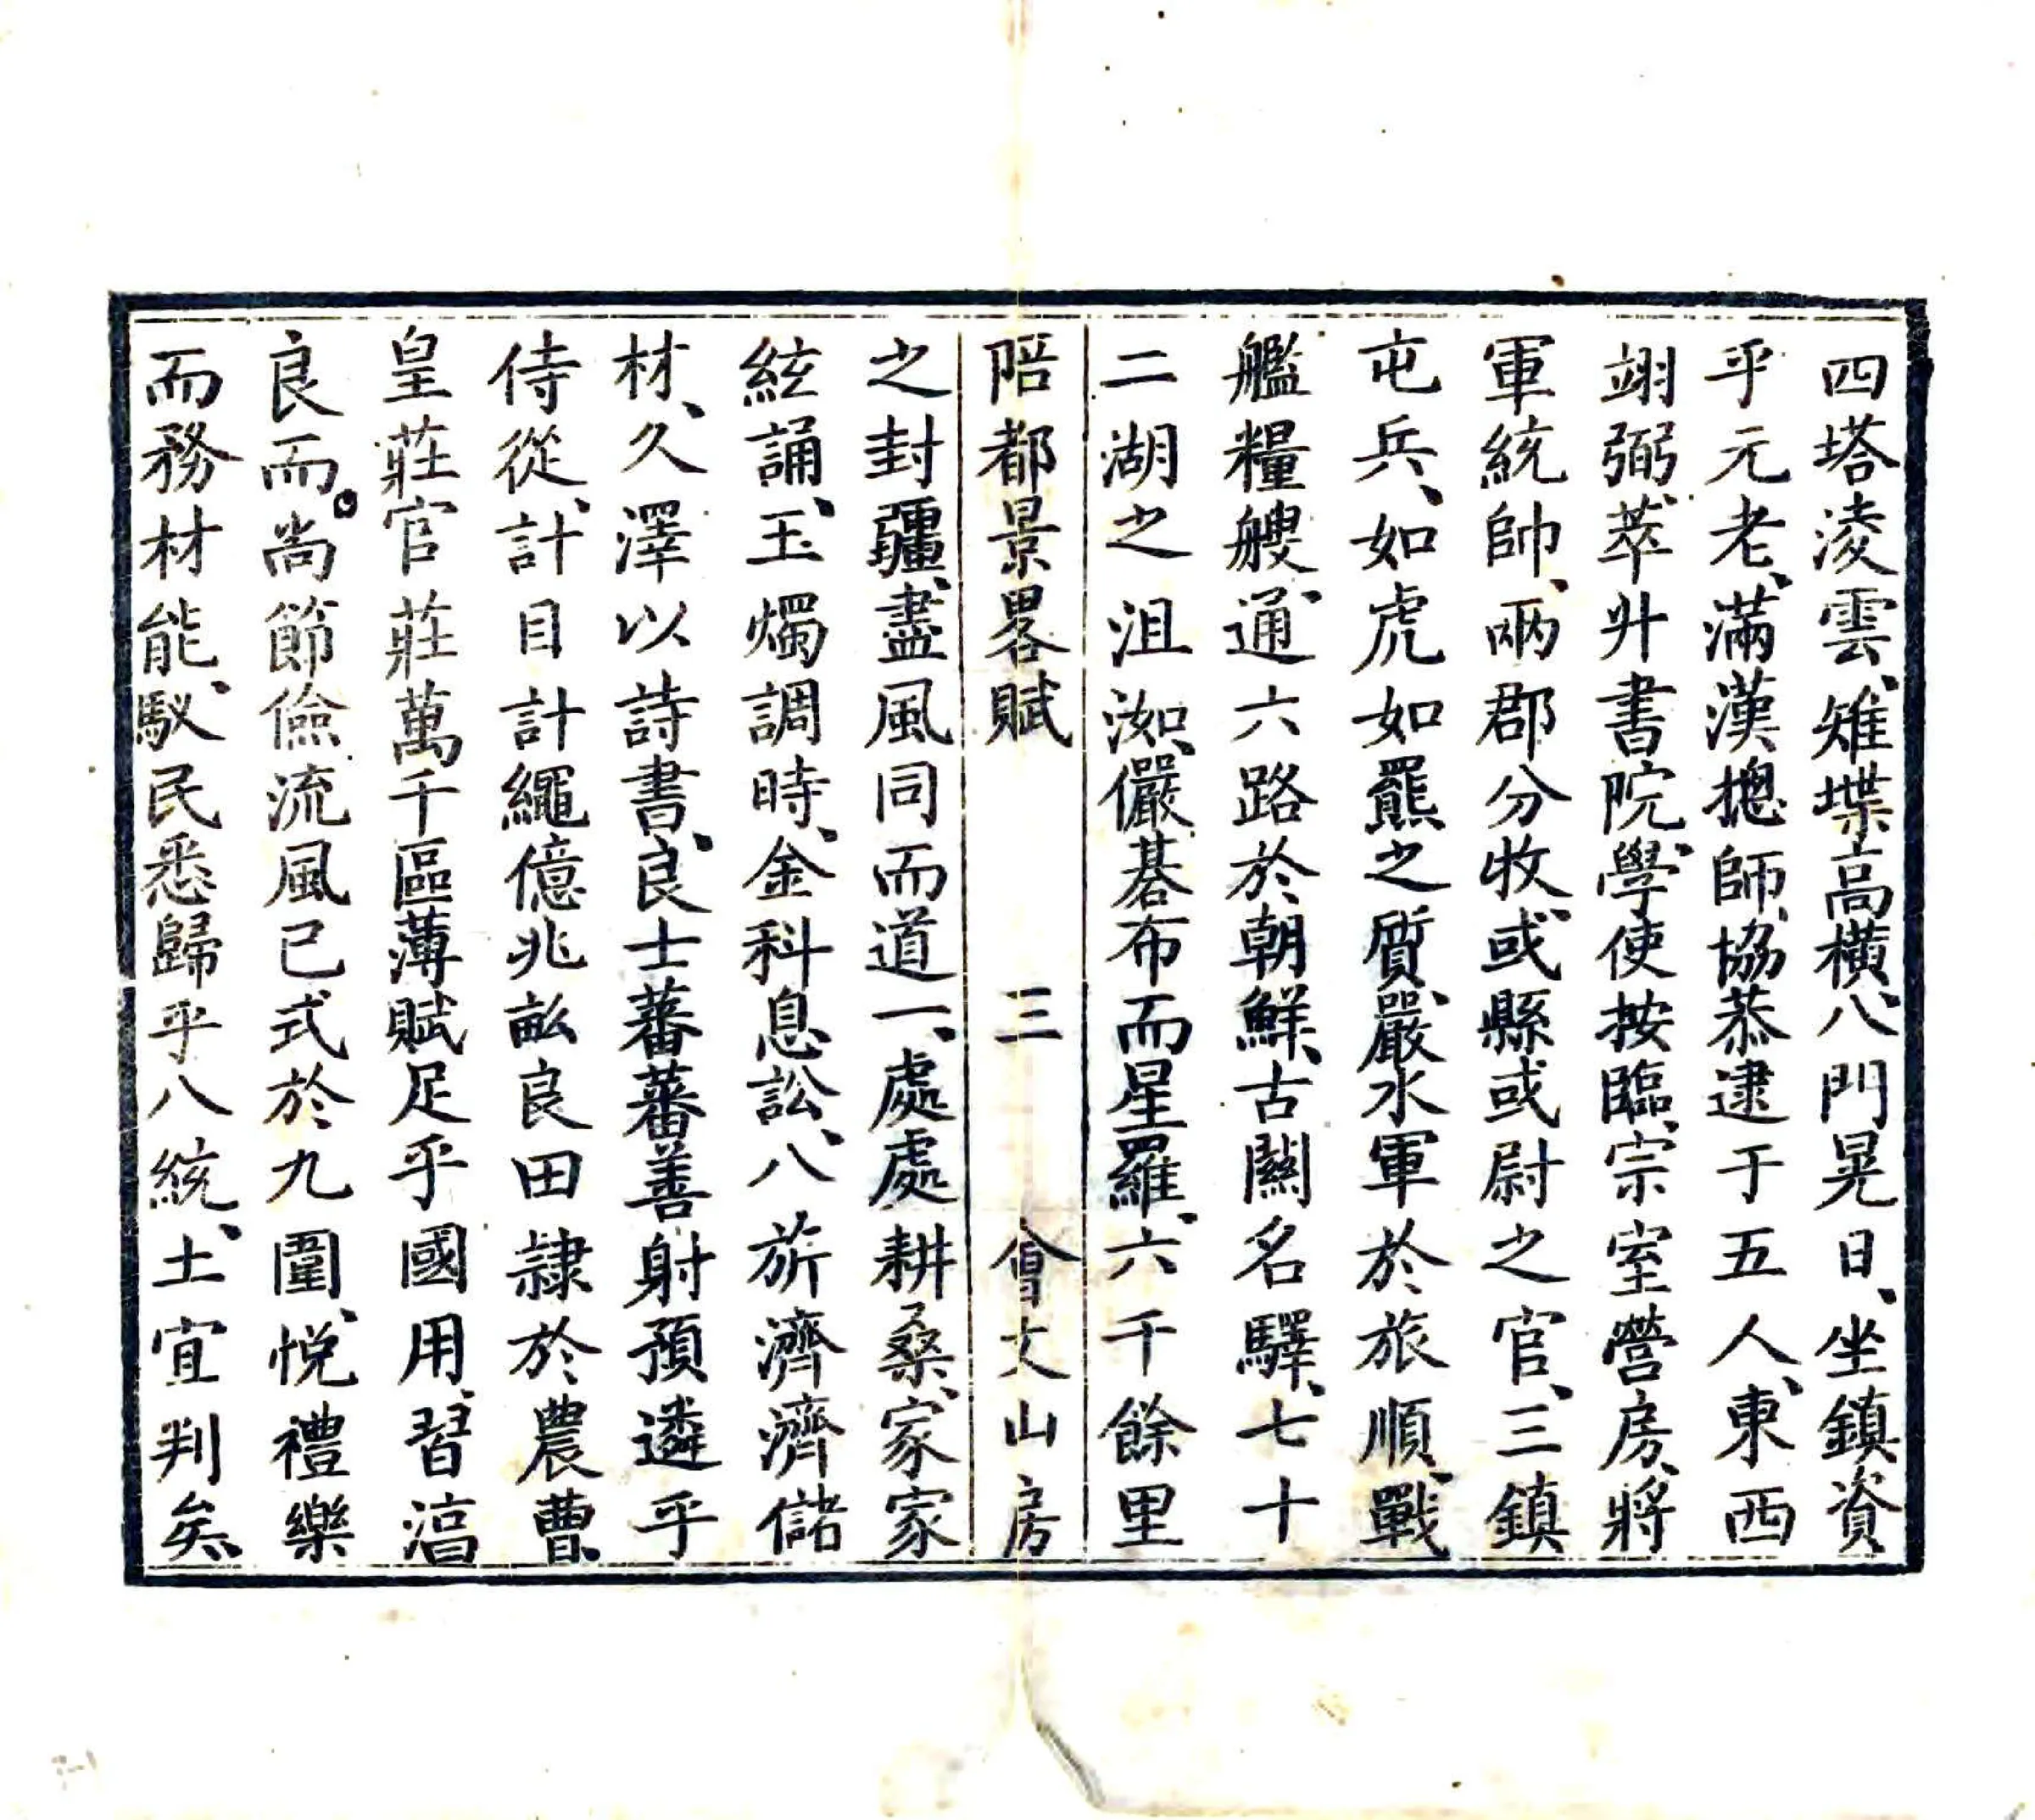 四塔凌雲、雉堞高橫、八門晃日、坐鎮資
乎元老、滿漢摠師、協恭逮于五人、東西
翊弼、萃升書院、學使按臨、宗室營房、將
軍統帥、兩郡分牧、或縣或尉之官、三鎮
屯兵、如虎如羆之質、嚴水軍於旅順、戰
艦糧艘、通六路於朝鮮、古關名驛、七十
二湖之沮洳、儼碁布而星羅、六千餘里
陪都景畧賦 三 會文山房
之封疆、盡風同而道一、處處耕桑、家家
絃誦、玉燭調時、金科息訟、八旂濟濟儲
材、久澤以詩書、良士蕃蕃善射預遴乎
侍從、計目計繩億兆畝良田隷於農曹、
皇莊官莊萬千區薄賦足乎國用、習湻
良而。尚節儉流風已式於九圍、悅禮樂
而務材能、馭民悉歸乎八統、土宜判矣、